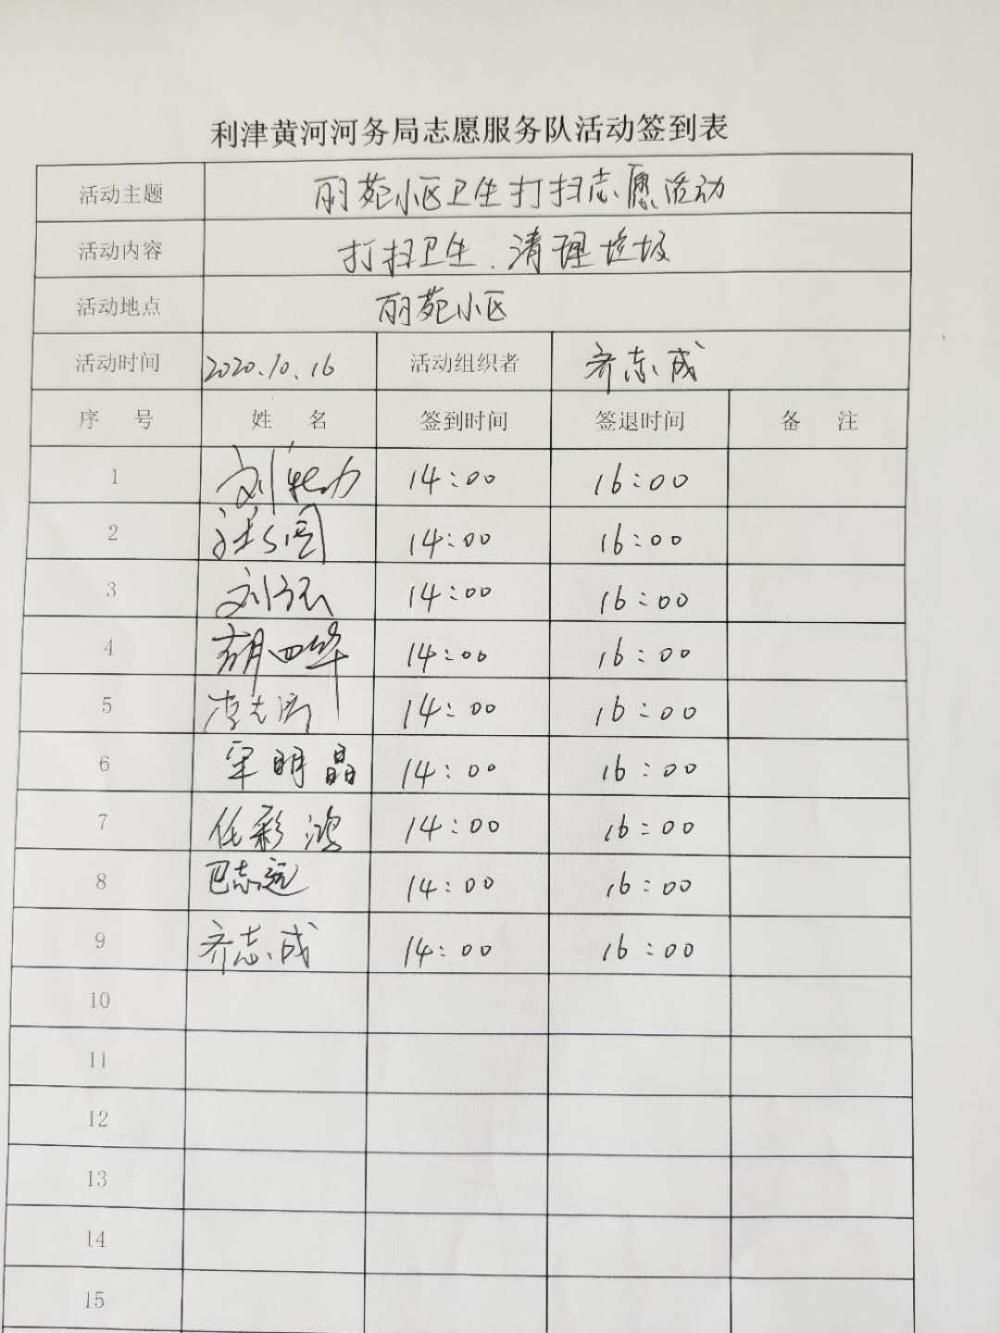 利津黄河河务局志愿服务队活动签到表
活动主题 丽苑小区卫生打扫志愿活动
活动内容 打扫卫生、清理垃圾
活动地点 丽苑小区
活动时间 2020.10.16 活动组织者 齐志成
序 号 姓 名 签到时间 签退时间 备 注
1 刘 14:00 16:00
2 张 14:00 16:00
3 刘 14:00 16:00
4 胡四华 14:00 16:00
5 李志 14:00 16:00
6 明晶 14:00 16:00
7 任彩鸿 14:00 16:00
8 巴志远 14:00 16:00
9 齐志成 14:00 16:00
10
11
12
13
14
15